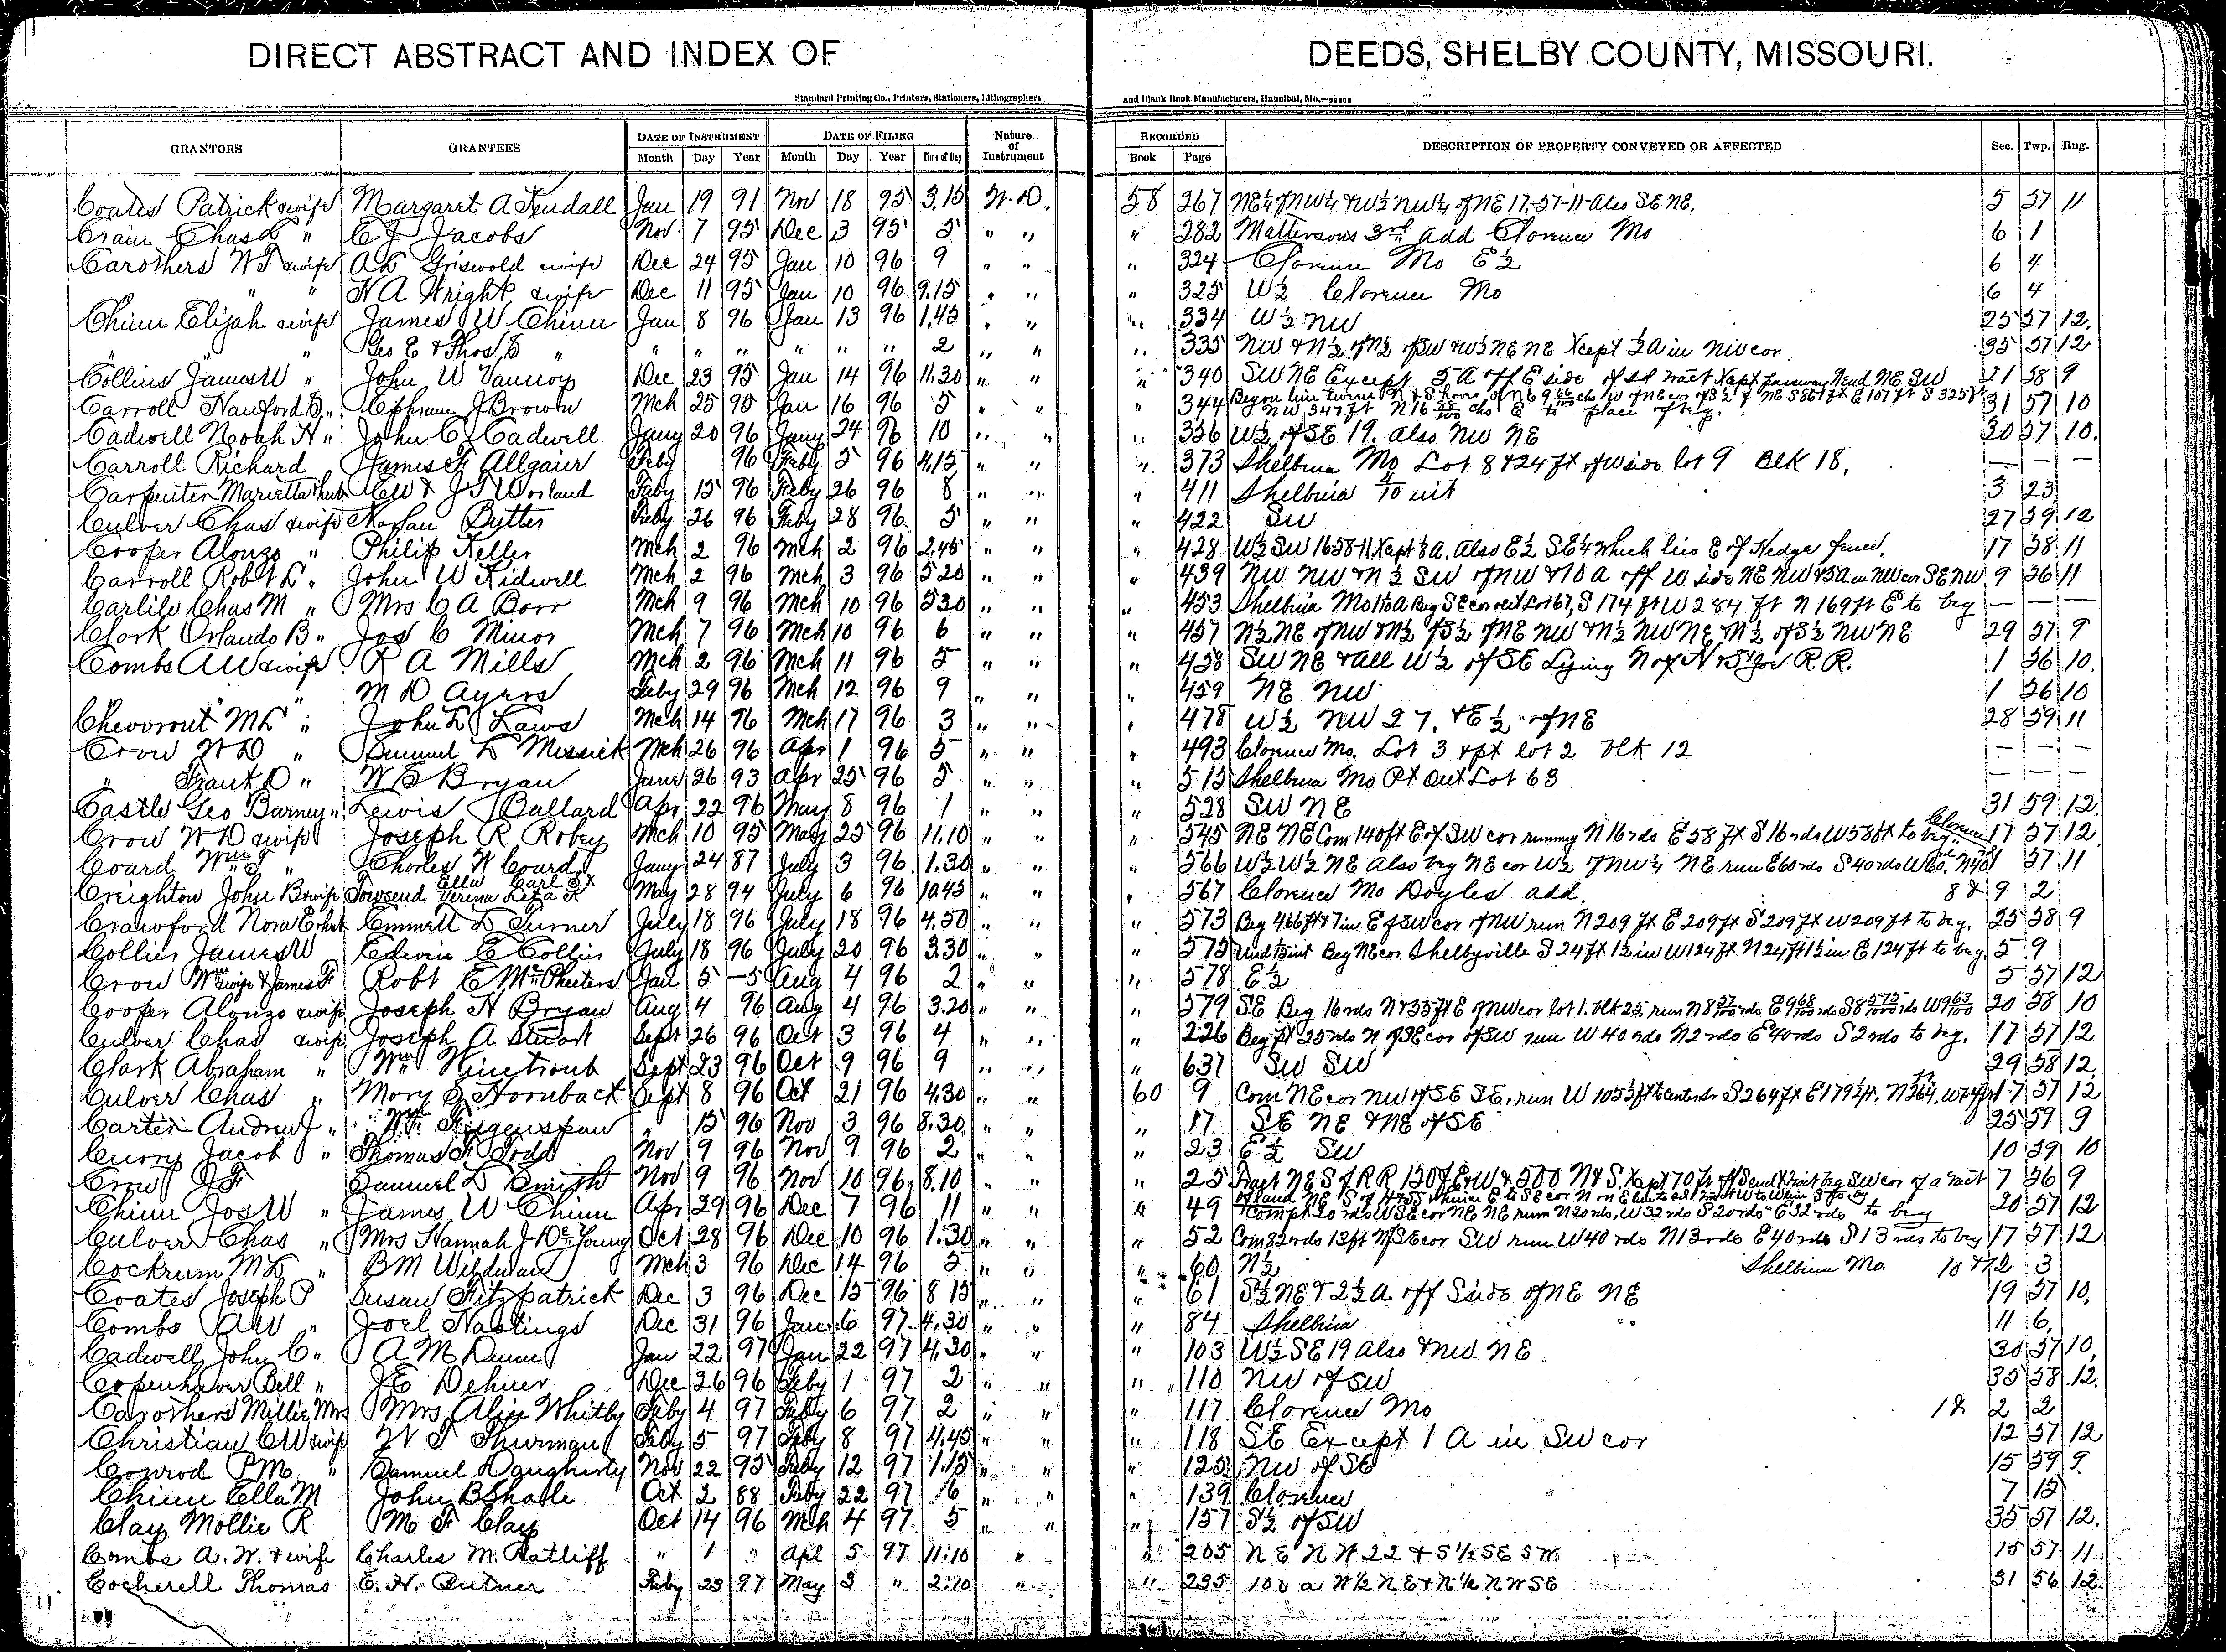 DIRECT ABSTRACT AND INDEX OF DEEDS, SHELBY COUNTY, MISSOURI.
Standard Printing Co., Printers, Stationers, Lithographers and Blank Book Manufacturers, Hannibal, Mo.
GRANTORS GRANTEES DATE OF INSTRUMENT DATE OF FILING Nature of Instrument RECORDED DESCRIPTION OF PROPERTY CONVEYED OR AFFECTED Sec. Twp. Rng.
Month Day Year Month Day Year Time of Day Book Page
Coates Patrick & wife Margaret A Kendall Jan 19 91 Nov 18 95 3.15 W.D. 58 267 NE¼ of NW¼ & W½ NW¼ of NE 17-57-11 also SE NE. 5 57 11
Crain Chas L " C J Jacobs Nov 7 95 Dec 3 95 5 " " " 282 Mattersons 3rd add Clarence Mo 6 1
Carothers W T & wife A L Griswold & wife Dec 24 95 Jan 10 96 9 " " " 324 Clarence Mo E½ 6 4
" " N A Wright & wife Dec 11 95 Jan 10 96 9.15 " " " 325 W½ Clarence Mo 6 4
Chinn Elijah & wife James W Chinn Jan 8 96 Jan 13 96 1.45 " " " 334 W½ NW 25 57 12
" " " Geo E & Thos S " " " " " " " 2 " " " 335 NW & N½ of N½ of SW & W½ NE NE Xcept ½ A in NW cor. 35 57 12
Collins James W " John W Vannoy Dec 23 95 Jan 14 96 11.30 " " " 340 SW NE Except 5 A off E side of sd tract Xept passway N end NE SW 21 58 9
Carroll Sanford D " Ephraim J Brown Mch 25 95 Jan 16 96 5 " " " 344 place of beg. 31 57 10
Cadwell Noah H " John C Cadwell Jany 20 96 Jany 24 96 10 " " " 356 W½ of SE 19. Also NW NE 30 57 10
Carroll Richard James F Allgaier Feby 96 Feby 5 96 4.15 " " " 373 Shelbina Mo Lot 8 & 24 ft of W side lot 9 Blk 18. — — —
Carpenter Marietta & hub C W & J T Worland Feby 15 96 Feby 26 96 8 " " " 411 Shelbina 4/10 int 3 23
Culver Chas & wife Harlan Butter Feby 26 96 Feby 28 96 5 " " " 422 SW 27 59 12
Cooper Alonzo " Philip Keller Mch 2 96 Mch 2 96 2.45 " " " 428 W½ SW 16 58-11, Xcept 8 A. Also E½ SE¼ which lies E of Hedge fence. 17 58 11
Carroll Robt L " John W Kidwell Mch 2 96 Mch 3 96 5 20 " " " 439 NW NW & N½ SW of NW & 10 a off W side NE NW & 5 A in NW cor SE NW 9 56 11
Carlile Chas M " Mrs C A Borr Mch 9 96 Mch 10 96 5 30 " " " 453 Shelbina Mo Beg SE cor out Lot 67, S 174 ft W 284 ft N 169 ft E to beg — — —
Clark Orlando B " Jos C Minor Mch 7 96 Mch 10 96 6 " " " 457 N½ NE of NW & N½ of S½ of NE NW & N½ NW NE & N½ of S½ NW NE 29 57 9
Combs A W & wife R A Mills Mch 2 96 Mch 11 96 5 " " " 458 SW NE & all W½ of SE Lying N of H & St Joe R.R. 1 56 10
" " M D Ayers Feby 29 96 Mch 12 96 9 " " " 459 NE NW 1 56 10
Chevront M L " John L Laws Mch 14 96 Mch 17 96 3 " " " 478 W½ NW 27. & E½ of NE 28 59 11
Crow W D " Samuel L Messick Mch 26 96 Apr 1 96 5 " " " 493 Clarence Mo. Lot 3 & pt lot 2 blk 12 — — —
" Frank D " W S Bryan June 26 93 Apr 25 96 5 " " " 515 Shelbina Mo Pt Out Lot 63 — — —
Castle Geo Barney " Lewis Ballard Apr 22 96 May 8 96 1 " " " 528 SW NE 31 59 12
Crow W D & wife Joseph R Robey Mch 10 95 May 25 96 11.10 " " " 545 NE NE Com 140 ft E of SW cor running N 16 rds E 58 ft S 16 rds W 58 ft to beg Clarence 17 57 12
Coard Wm T " Charles W Coard Jany 24 87 July 3 96 1.30 " " " 566 W½ W½ NE Also beg NE cor W½ of NW¼ NE run E 60 rds S 40 rds 1 57 11
Creighton John B & wife Townsend Ella Carl S & Verena Leta K May 28 94 July 6 96 10.45 " " " 567 Clarence Mo Doyles add. 8 & 9 2
Crawford Nora E & hub Emmett L Turner July 18 96 July 18 96 4.50 " " " 573 Beg 466 ft & 7 in E of SW cor of NW run N 209 ft E 209 ft S 209 ft W 209 ft to beg. 25 58 9
Collier James W Edwin E Collier July 18 96 July 20 96 3.30 " " " 575 Beg NE cor Shelbyville S 24 ft 1½ in W 124 ft N 24 ft 1½ in E 124 ft to beg. 5 9
Crow Wm & wife & James F Robt E McPheeters Jan 5 –5 Aug 4 96 2 " " " 578 E½ 5 57 12
Cooper Alonzo & wife Joseph H Bryan Aug 4 96 Aug 4 96 3.20 " " " 579 SE Beg 16 rds N & 33 ft E of NW cor lot 1. blk 25, run N 8 57/100 rds E 9 68/100 rds S 8 575/1000 rds W 9 63/100 20 58 10
Culver Chas & wife Joseph A Stuart Sept 26 96 Oct 3 96 4 " " " 226 Beg pt 25 rds N of SE cor of SW run W 40 rds N 2 rds E 40 rds S 2 rds to beg. 17 57 12
Clark Abraham " Wm Winetroub Sept 23 96 Oct 9 96 9 " " " 631 SW SW 29 58 12
Culver Chas " Mary S Hornback Sept 8 96 Oct 21 96 4.30 " " 60 9 Com NE cor NW of SE SE. run W 105½ ft S 264 ft E 179½ ft. N 264, W 74 ft 17 57 12
Carter Andrew J " Wm Feigenspan " 15 96 Nov 3 96 8.30 " " " 17 SE NE & NE of SE 25 59 9
Curry Jacob " Thomas F Todd Nov 9 96 Nov 9 96 2 " " " 23 E½ SW 10 59 10
Crow J F Samuel L Smith Nov 9 96 Nov 10 96 8.10 " " " 25 Tract NE S of RR 150 ft E & W & 500 N & S. 7 56 9
Chinn Jos W " James W Chinn Apr 29 96 Dec 7 96 11 " " " 49 Com pt 20 rds W SE cor NE NE run N 20 rds, W 32 rds S 20 rds E 32 rds to beg 20 57 12
Culver Chas " Mrs Hannah J DeYoung Oct 28 96 Dec 10 96 1.30 " " " 52 Com 82 rds 12 ft N of SE cor SW run W 40 rds N 13 rds E 40 rds S 13 rds to beg 17 57 12
Cockrum M L " B M Wildman Mch 3 96 Dec 14 96 5 " " " 60 N½ Shelbina Mo. 10 & 12 3
Coates Joseph P Susan Fitzpatrick Dec 3 96 Dec 15 96 8 15 " " " 61 S½ NE & 2½ A off S side of NE NE 19 57 10
Combs A W " Joel Hastings Dec 31 96 Jan 6 97 4.30 " " " 84 Shelbina 11 6
Cadwell John C " A M Dunn Jan 22 97 Jan 22 97 4.30 " " " 103 W½ SE 19 also & NW NE 30 57 10
Copenhaver Bell " J E Dehner Dec 26 96 Feby 1 97 2 " " " 110 NW of SW 35 58 12
Carothers Millie Mrs Mrs Alice Whitby Feby 4 97 Feby 6 97 2 " " " 117 Clarence Mo 1 & 2 2
Christian C W & wife W T Thurman Feby 5 97 Feby 8 97 4.45 " " " 118 SE Except 1 A in SW cor 12 57 12
Conrod P M " Samuel Daugherty Nov 22 95 Feby 12 97 1.15 " " " 125 NW of SE 15 59 9
Chinn Ella M John B Shale Oct 2 88 Feby 22 97 16 " " " 139 Clarence 7 15
Clay Mollie R M F Clay Oct 14 96 Mch 4 97 5 " " " 157 S½ of SW 35 57 12
Combs A. W. & wife Charles M. Ratliff " 1 " Apl 5 97 11:10 " " 205 N E N W 22 & S ½ S E S W 15 57 11
Cocherell Thomas E. H. Butner Feby 23 97 May 3 " 2:10 " " 235 100 a W ½ N E & N ½ N W S E 31 56 12